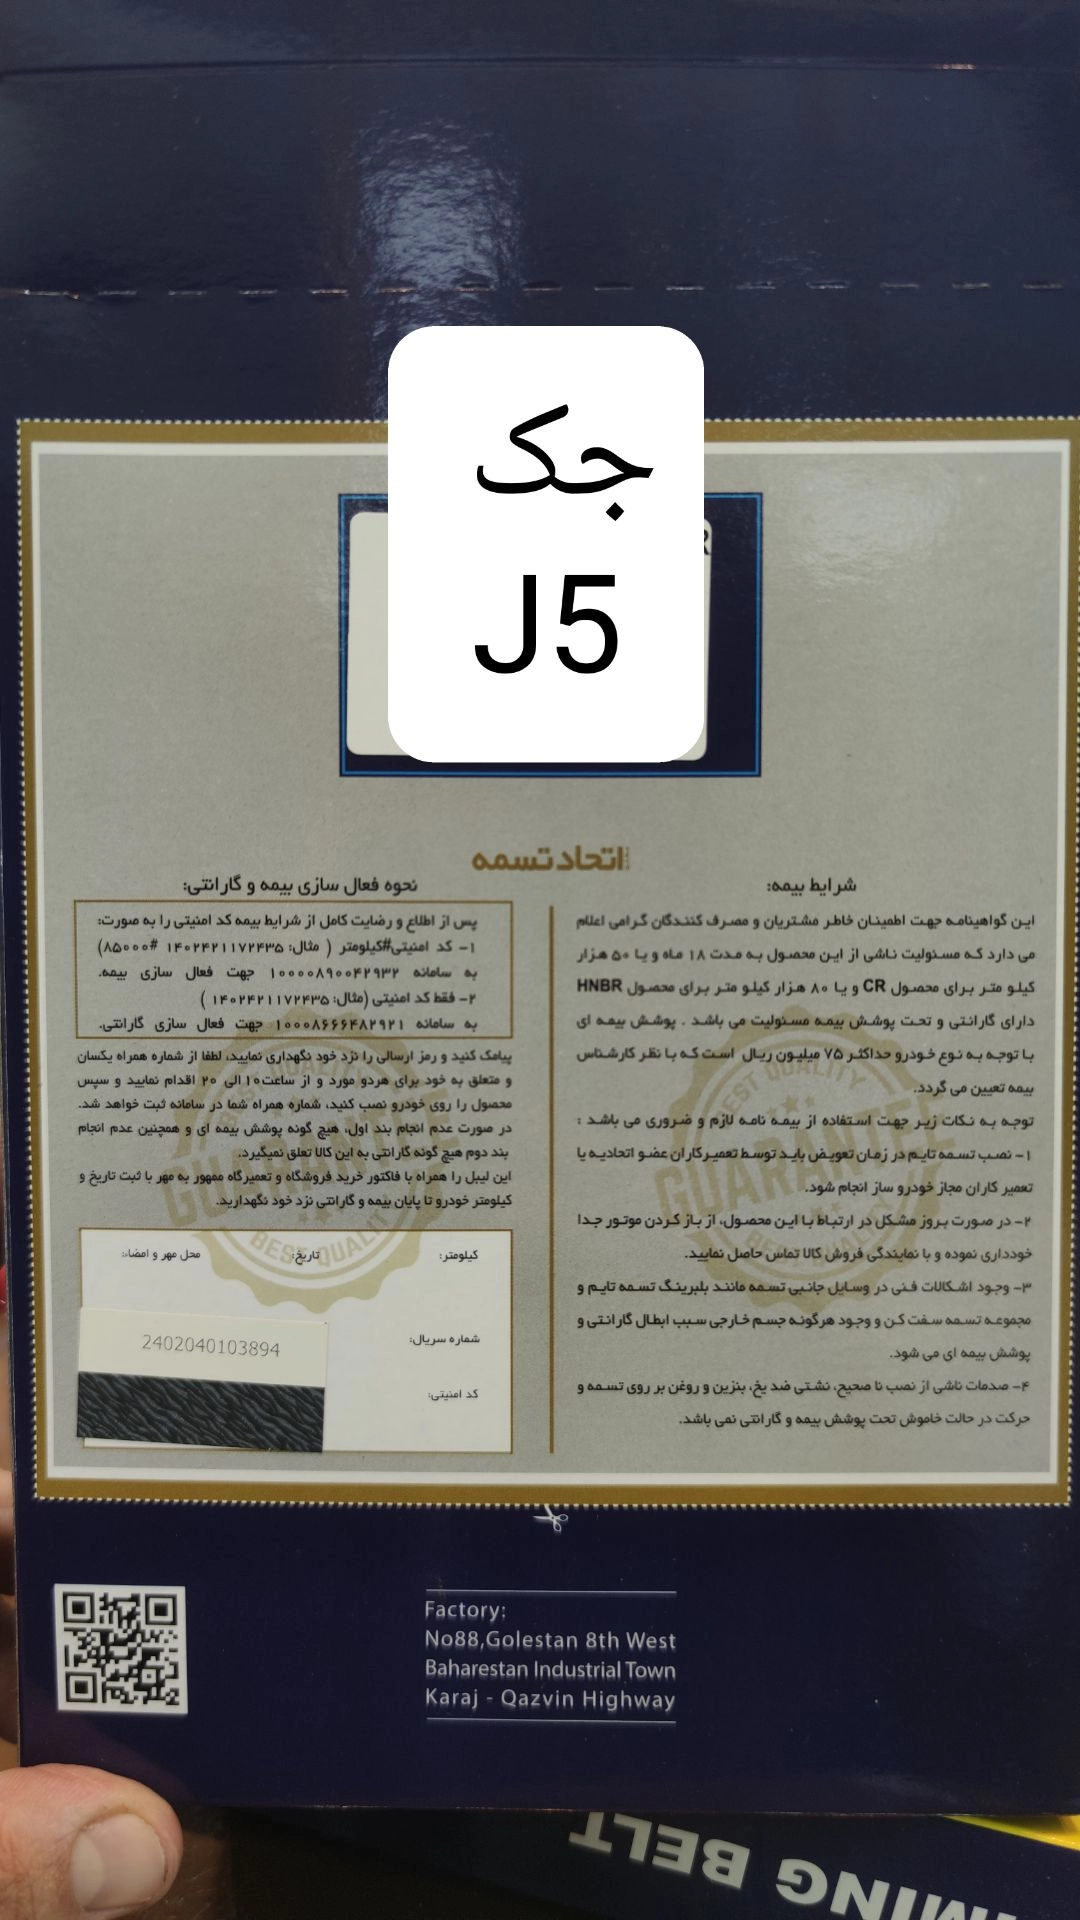 جک
J5
اتحاد تسمه
شرایط بیمه:
این گواهینامه جهت اطمینان خاطر مشتریان و مصرف کنندگان گرامی اعلام
می دارد که مسئولیت ناشی از این محصول به مدت ۱۸ ماه و یا ۵۰ هزار
کیلو متر برای محصول CR و یا ۸۰ هزار کیلو متر برای محصول HNBR
دارای گارانتی و تحت پوشش بیمه مسئولیت می باشد . پوشش بیمه ای
با توجه به نوع خودرو حداکثر ۷۵ میلیون ریال است که با نظر کارشناس
بیمه تعیین می گردد.
توجه به نکات زیر جهت استفاده از بیمه نامه لازم و ضروری می باشد :
۱- نصب تسمه تایم در زمان تعویض باید توسط تعمیرکاران عضو اتحادیه یا
تعمیر کاران مجاز خودرو ساز انجام شود.
۲- در صورت بروز مشکل در ارتباط با این محصول، از باز کردن موتور جدا
خودداری نموده و با نمایندگی فروش کالا تماس حاصل نمایید.
۳- وجود اشکالات فنی در وسایل جانبی تسمه مانند بلبرینگ تسمه تایم و
مجموعه تسمه سفت کن و وجود هرگونه جسم خارجی سبب ابطال گارانتی و
پوشش بیمه ای می شود.
۴- صدمات ناشی از نصب نا صحیح، نشتی ضد یخ، بنزین و روغن بر روی تسمه و
حرکت در حالت خاموش تحت پوشش بیمه و گارانتی نمی باشد.
نحوه فعال سازی بیمه و گارانتی:
پس از اطلاع و رضایت کامل از شرایط بیمه کد امنیتی را به صورت:
۱- کد امنیتی#کیلومتر ( مثال: ۱۴۰۲۴۲۱۱۷۲۴۳۵ #۸۵۰۰۰)
به سامانه ۱۰۰۰۰۸۹۰۰۴۲۹۳۲ جهت فعال سازی بیمه.
۲- فقط کد امنیتی (مثال: ۱۴۰۲۴۲۱۱۷۲۴۳۵ )
به سامانه ۱۰۰۰۸۶۶۶۴۸۲۹۲۱ جهت فعال سازی گارانتی.
پیامک کنید و رمز ارسالی را نزد خود نگهداری نمایید، لطفا از شماره همراه یکسان
و متعلق به خود برای هردو مورد و از ساعت۱۰الی ۲۰ اقدام نمایید و سپس
محصول را روی خودرو نصب کنید، شماره همراه شما در سامانه ثبت خواهد شد.
در صورت عدم انجام بند اول، هیچ گونه پوشش بیمه ای و همچنین عدم انجام
بند دوم هیچ گونه گارانتی به این کالا تعلق نمیگیرد.
این لیبل را همراه با فاکتور خرید فروشگاه و تعمیرگاه ممهور به مهر با ثبت تاریخ و
کیلومتر خودرو تا پایان بیمه و گارانتی نزد خود نگهدارید.
کیلومتر: تاریخ: محل مهر و امضاء:
شماره سریال: 2402040103894
کد امنیتی:
BEST QUALITY
GUARANTEE
BEST QUALITY
Factory:
No88,Golestan 8th West
Baharestan Industrial Town
Karaj - Qazvin Highway
TIMING BELT